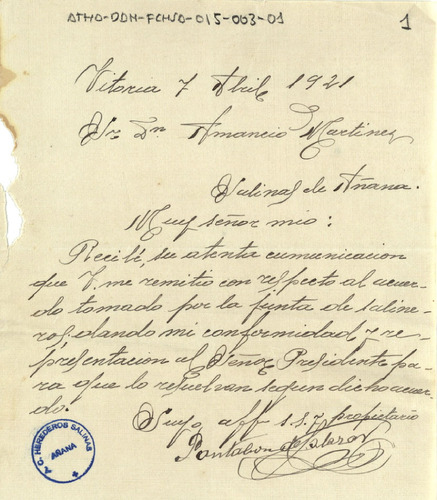 ATHO-DDH-FCHSO-015-003-01
1
Vitoria 7 Abril 1921
Sr Dn Amancio Martinez
Salinas de Añana.
Muy señor mio:
Recibí su atenta comunicacion
que V. me remitio con respecto al acuer
do tomado por la junta de saline
ros, dando mi conformidad y re
presentacion al Señor Presidente pa
ra que lo resuelvan segun dicho acuer
do.
Suyo aff s.s. y propietario
Pantaleon de
C. HEREDEROS SALINAS
AÑANA